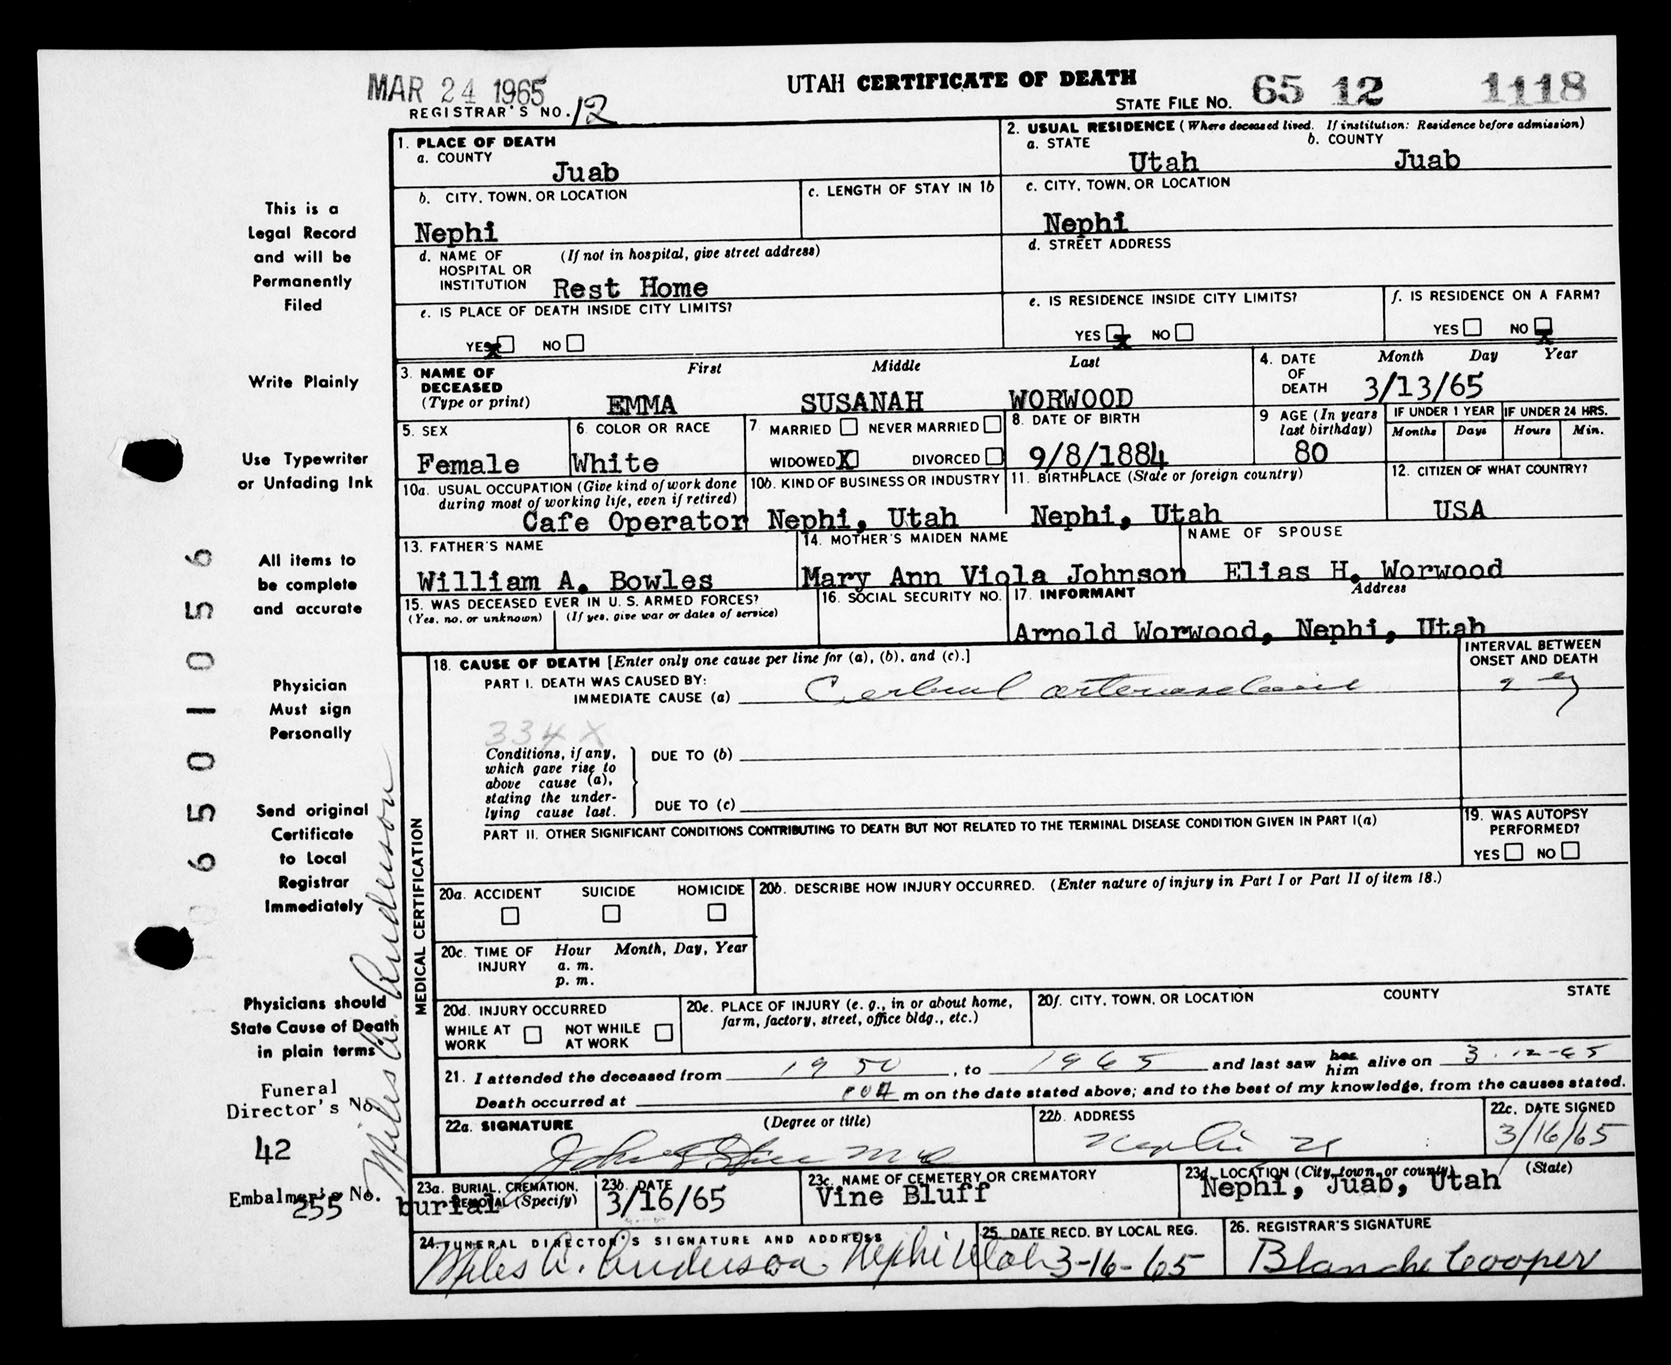 MAR 24 1965
UTAH CERTIFICATE OF DEATH
REGISTRAR'S NO. 12
STATE FILE NO. 65 12 1118
This is a
Legal Record
and will be
Permanently
Filed
Write Plainly
Use Typewriter
or Unfading Ink
All items to
be complete
and accurate
Physician
Must sign
Personally
Send original
Certificate
to Local
Registrar
Immediately
Physicians should
State Cause of Death
in plain terms
Funeral
Director's No.
42
Embalmer's No.
255
Miles A. Anderson
650 10 56
1. PLACE OF DEATH
a. COUNTY
Juab
2. USUAL RESIDENCE (Where deceased lived. If institution: Residence before admission)
a. STATE
Utah
b. COUNTY
Juab
b. CITY, TOWN, OR LOCATION
Nephi
c. LENGTH OF STAY IN 1b
c. CITY, TOWN, OR LOCATION
Nephi
d. NAME OF HOSPITAL OR INSTITUTION (If not in hospital, give street address)
Rest Home
d. STREET ADDRESS
e. IS PLACE OF DEATH INSIDE CITY LIMITS?
YES X NO
e. IS RESIDENCE INSIDE CITY LIMITS?
YES X NO
f. IS RESIDENCE ON A FARM?
YES NO X
3. NAME OF DECEASED (Type or print)
First Middle Last
EMMA SUSANAH WORWOOD
4. DATE OF DEATH Month Day Year
3/13/65
5. SEX
Female
6. COLOR OR RACE
White
7. MARRIED NEVER MARRIED
WIDOWED X DIVORCED
8. DATE OF BIRTH
9/8/1884
9 AGE (In years last birthday)
80
IF UNDER 1 YEAR IF UNDER 24 HRS.
Months Days Hours Min.
10a. USUAL OCCUPATION (Give kind of work done during most of working life, even if retired)
Cafe Operator
10b. KIND OF BUSINESS OR INDUSTRY
Nephi, Utah
11. BIRTHPLACE (State or foreign country)
Nephi, Utah
12. CITIZEN OF WHAT COUNTRY?
USA
13. FATHER'S NAME
William A. Bowles
14. MOTHER'S MAIDEN NAME
Mary Ann Viola Johnson
NAME OF SPOUSE
Elias H. Worwood
15. WAS DECEASED EVER IN U. S. ARMED FORCES?
(Yes, no, or unknown) (If yes, give war or dates of service)
16. SOCIAL SECURITY NO.
17. INFORMANT Address
Arnold Worwood, Nephi, Utah
MEDICAL CERTIFICATION
18. CAUSE OF DEATH [Enter only one cause per line for (a), (b), and (c).]
INTERVAL BETWEEN ONSET AND DEATH
PART I. DEATH WAS CAUSED BY:
IMMEDIATE CAUSE (a) Cerbral
334 X
Conditions, if any,
which gave rise to
above cause (a),
stating the under-
lying cause last.
DUE TO (b)
DUE TO (c)
PART II. OTHER SIGNIFICANT CONDITIONS CONTRIBUTING TO DEATH BUT NOT RELATED TO THE TERMINAL DISEASE CONDITION GIVEN IN PART I(a)
19. WAS AUTOPSY PERFORMED?
YES NO
20a. ACCIDENT SUICIDE HOMICIDE
20b. DESCRIBE HOW INJURY OCCURRED. (Enter nature of injury in Part I or Part II of item 18.)
20c. TIME OF INJURY Hour Month, Day, Year
a. m.
p. m.
20d. INJURY OCCURRED
WHILE AT WORK NOT WHILE AT WORK
20e. PLACE OF INJURY (e. g., in or about home, farm, factory, street, office bldg., etc.)
20f. CITY, TOWN, OR LOCATION COUNTY STATE
21. I attended the deceased from 1950, to 1965 and last saw her him alive on 3-12-65
Death occurred at m on the date stated above; and to the best of my knowledge, from the causes stated.
22a. SIGNATURE (Degree or title)
22b. ADDRESS
Nephi U
22c. DATE SIGNED
3/16/65
23a. BURIAL, CREMATION, REMOVAL (Specify)
burial
23b. DATE
3/16/65
23c. NAME OF CEMETERY OR CREMATORY
Vine Bluff
23d. LOCATION (City, town, or county) (State)
Nephi, Juab, Utah
24. FUNERAL DIRECTOR'S SIGNATURE AND ADDRESS
Miles A. Anderson Nephi Utah
25. DATE RECD. BY LOCAL REG.
3-16-65
26. REGISTRAR'S SIGNATURE
Blanche Cooper